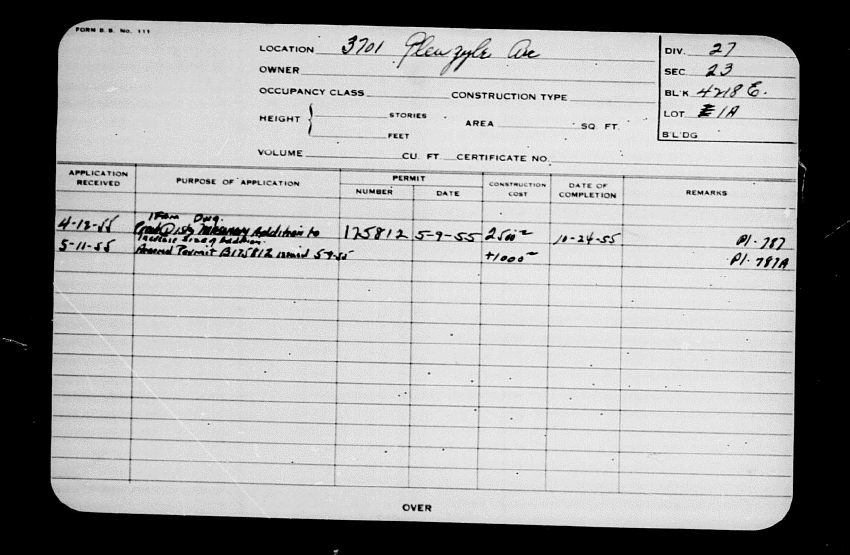 FORM B. B. No. 111
LOCATION 3701 Ave
DIV. 27
OWNER
SEC 23
OCCUPANCY CLASS CONSTRUCTION TYPE
BL'K 4218 E.
LOT 1A
HEIGHT STORIES
FEET
AREA SQ. FT.
B'L'DG
VOLUME CU. FT. CERTIFICATE NO.
APPLICATION RECEIVED PURPOSE OF APPLICATION PERMIT NUMBER DATE CONSTRUCTION COST DATE OF COMPLETION REMARKS
1 Fam Dwg.
4-12-55 1 sty Masonry Addition to 125812 5-9-55 2500 10-24-55 Pl. 787
Increase Size of Addition.
5-11-55 Amend Permit B125812 issued 5-9-55 +1000 Pl. 787A
OVER